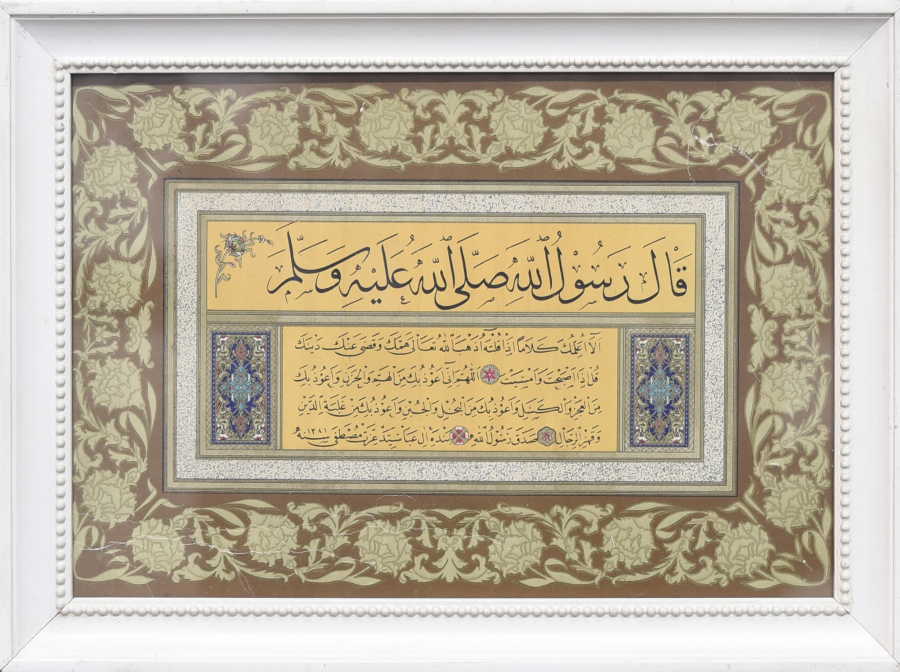 قَالَ رَسُولُ اللهِ صَلَّى اللهُ عَلَيْهِ وَسَلَّمَ
اَلَا اُعَلِّمُكَ كَلَامًا اِذَا قُلْتَهُ اَذْهَبَ اللهُ تَعَالٰى هَمَّكَ وَقَضٰى عَنْكَ دَيْنَكَ
قُلْ اِذَا اَصْبَحْتَ وَاَمْسَيْتَ اَللّٰهُمَّ اِنِّى اَعُوذُ بِكَ مِنَ الْهَمِّ وَالْحَزَنِ وَاَعُوذُ بِكَ
مِنَ الْعَجْزِ وَالْكَسَلِ وَاَعُوذُ بِكَ مِنَ الْبُخْلِ وَالْجُبْنِ وَاَعُوذُ بِكَ مِنْ غَلَبَةِ الدَّيْنِ
وَقَهْرِ الرِّجَالِ صَدَقَ رَسُولُ اللهِ بندهٔ آل عبا سيد عزت مصطفى سنه ١٣٨١